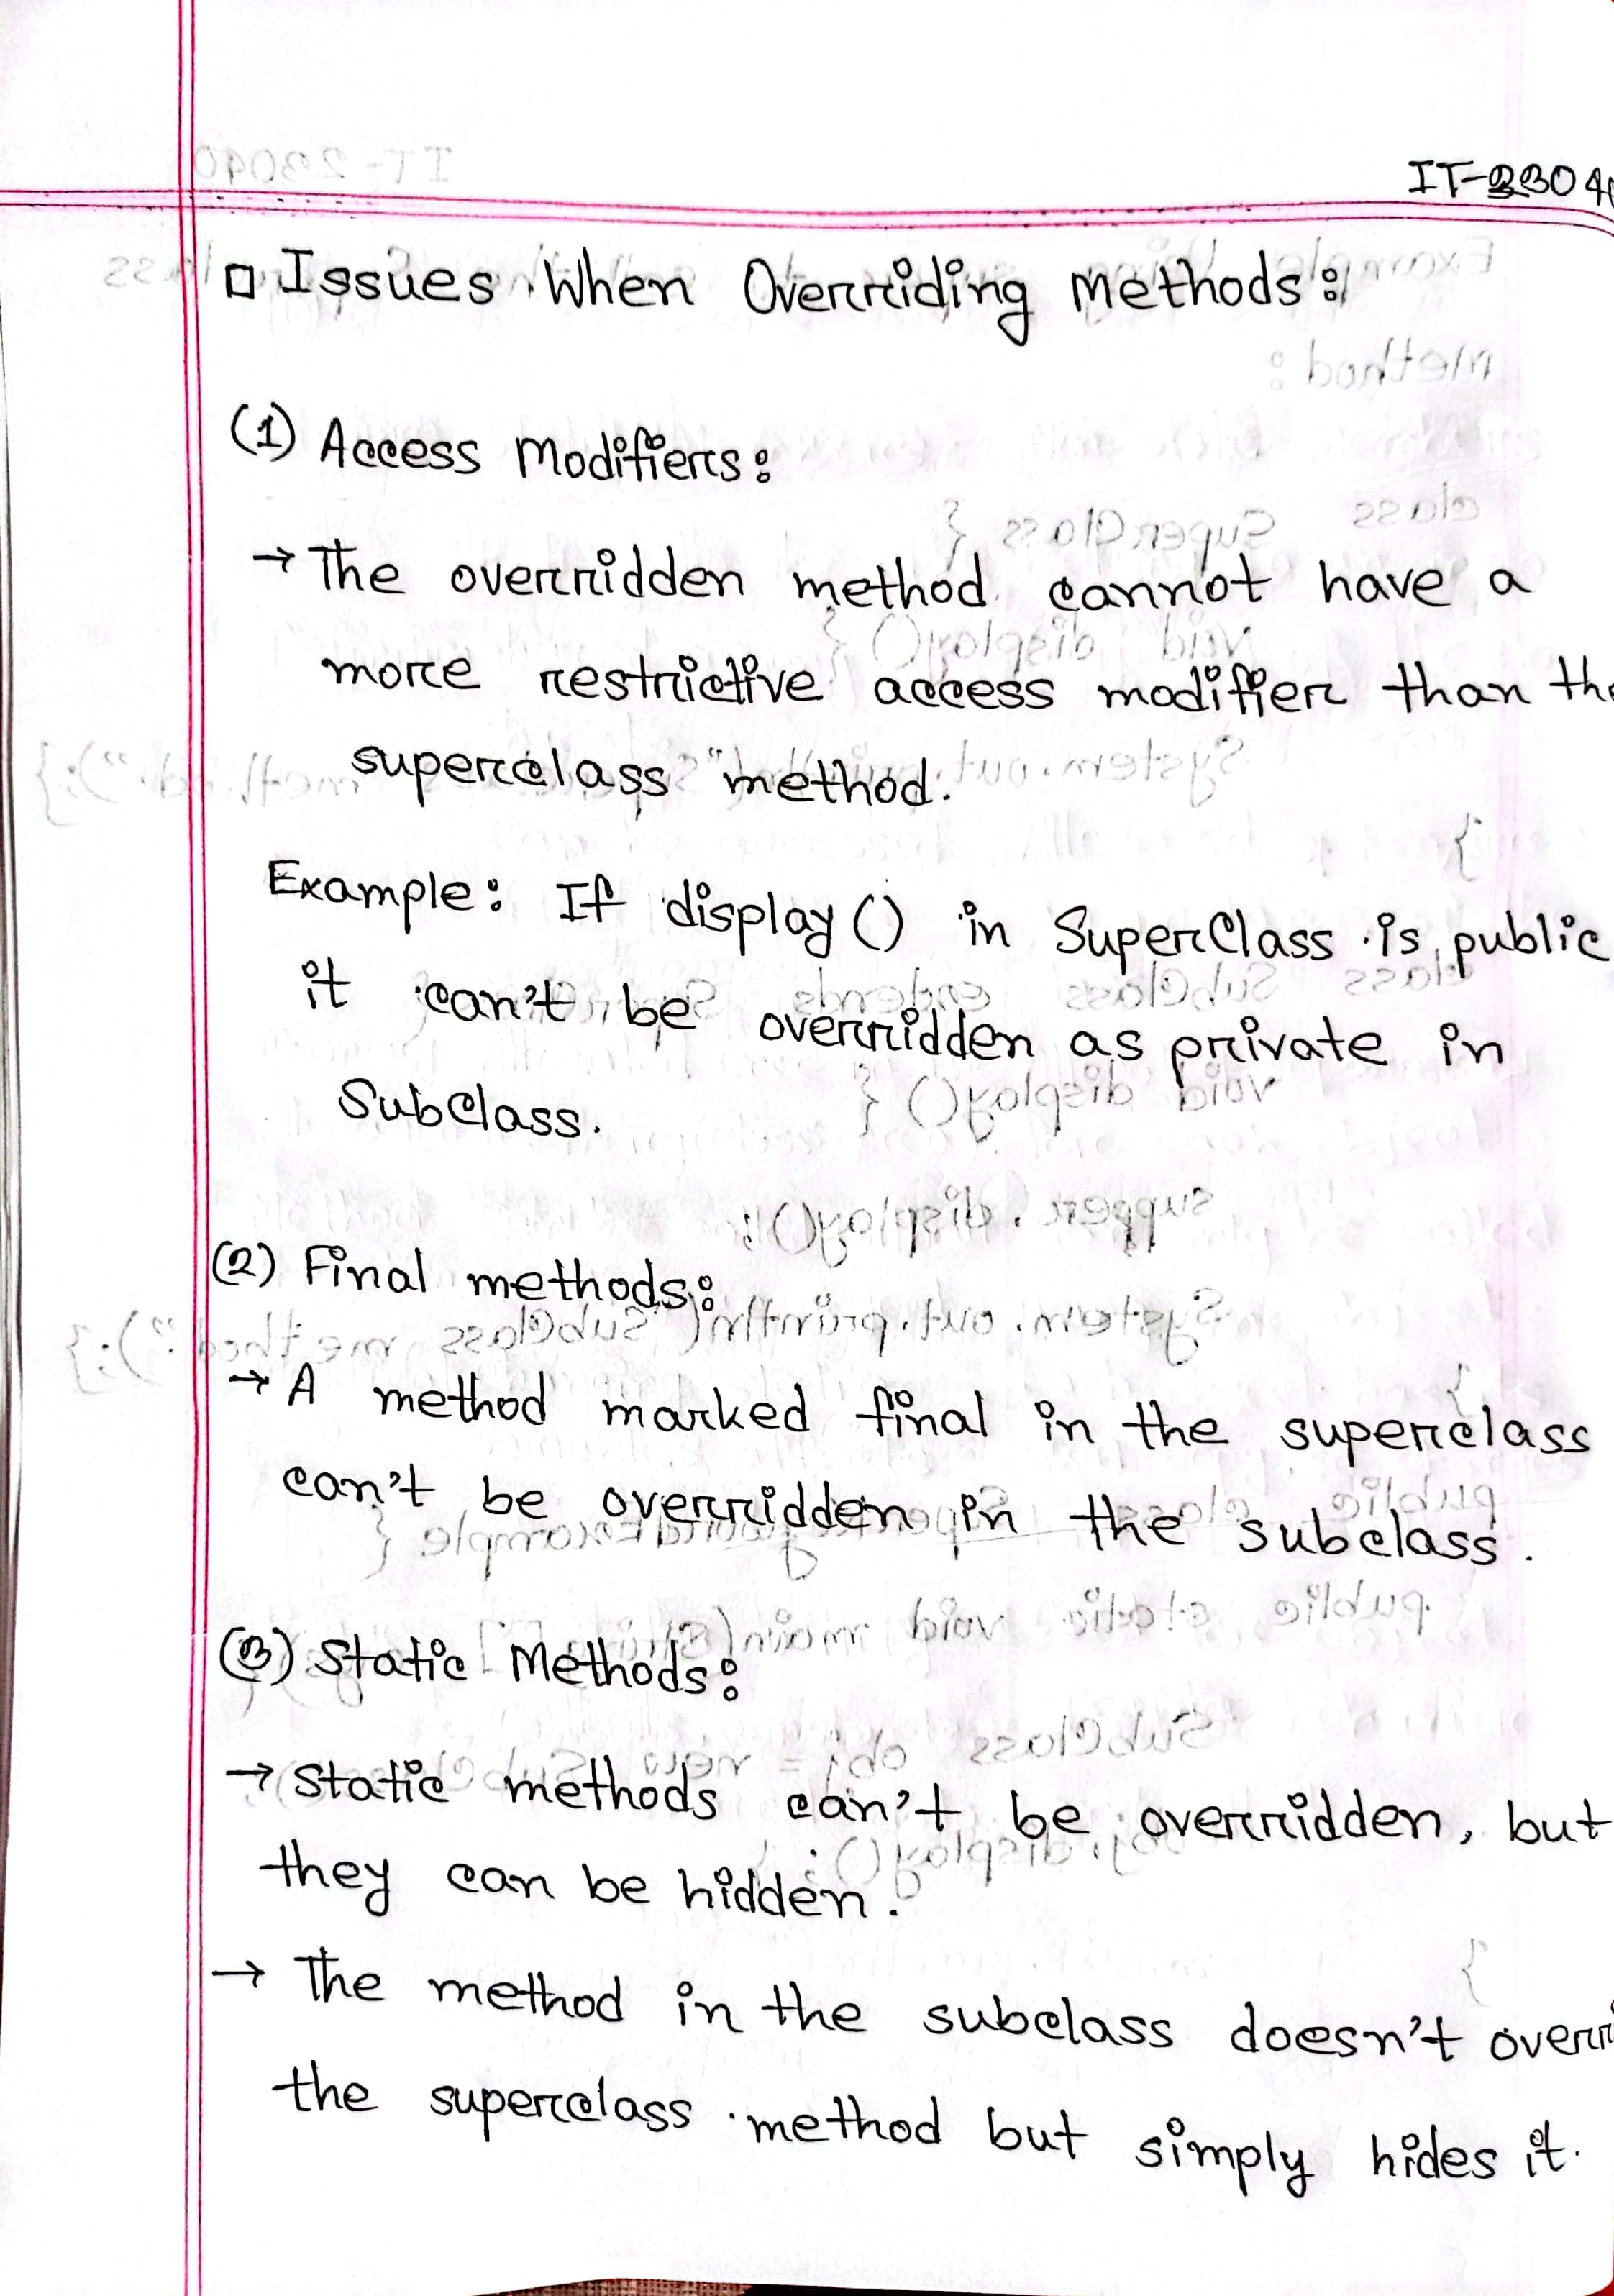 IT-2304
□ Issues When Overriding Methods:
(1) Access Modifiers:
→ The overridden method cannot have a
more restrictive access modifier than the
superclass method.
Example: If display() in SuperClass is public
it can't be overridden as private in
SubClass.
(2) Final methods:
→ A method marked final in the superclass
can't be overridden in the subclass.
(3) Static Methods:
→ Static methods can't be overridden, but
they can be hidden.
→ The method in the subclass doesn't overri
the superclass method but simply hides it.